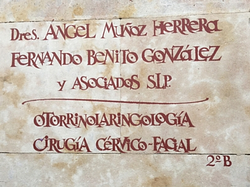 Dres. ANGEL MUÑOZ HERRERA
FERNANDO BENITO GONZÁLEZ
y ASOCIADOS S.L.P.
OTORRINOLARINGOLOGÍA
CIRUGÍA CÉRVICO-FACIAL
2º B